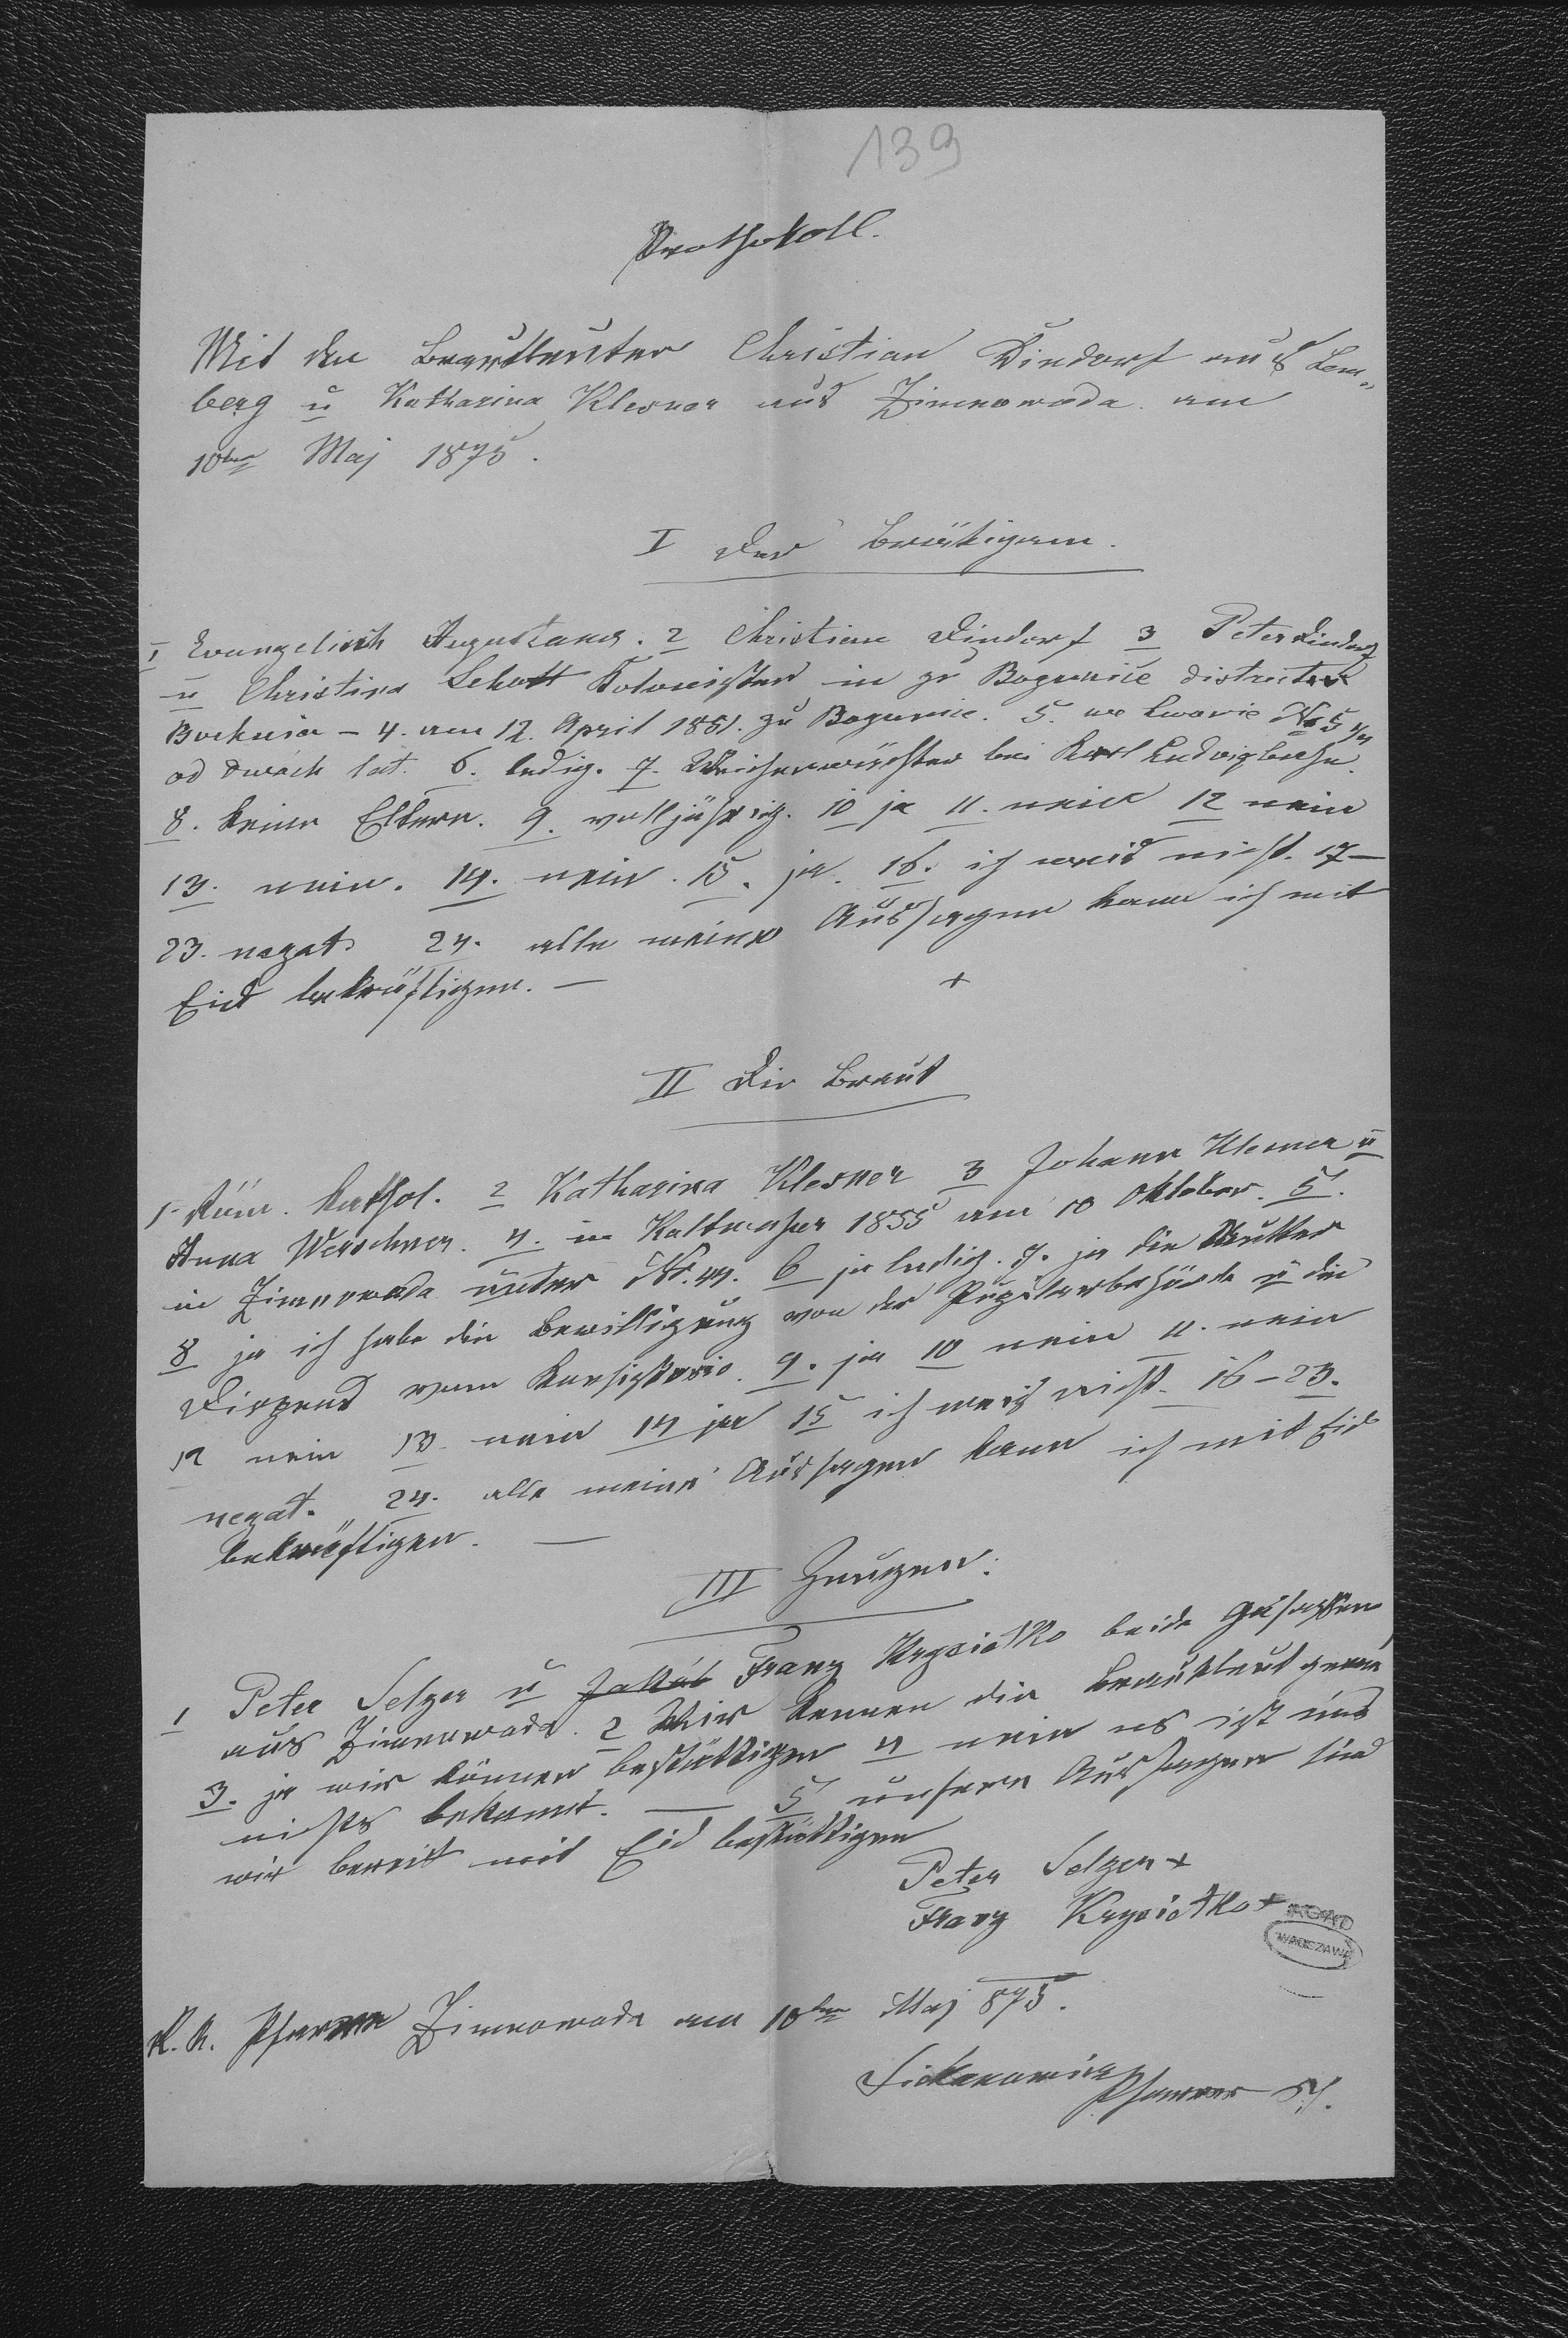 139
Prothokoll.
Mit den Brautleuten Christian Dindorf aus Lem„
berg u Katharina Klesner aus Zimnowoda am
10ten Maj 1875.
I Der Bräutigam.
1 Evangelisch Augustana. 2 Christian Dindorf 3 Peter Dindorf
u Christina Schott Kolonisten in zu Bogunice districtus
Bochnia – 4. am 12. April 1851. zu Bogunice. 5. we Lwowie No 5 4/4
od dwóch lat. 6. ledig. 7. Weichenwächter bei Karl Ludwigbahn.
8. keine Eltern. 9. volljährig. 10 ja 11. nein 12 nein
13. nein. 14. nein. 15. ja. 16. ich weis nicht. 17–
23. negat. 24. alle meine Aussagen kann ich mit
Eid bekräftigen. — +
II Die Braut
1. Röm. Kathol. 2 Katharina Klesner 3 Johann Klesner u
Anna Werschner. 4. in Kaltwasser 1855 am 10 Oktober. 5.
in Zimnowoda unter Nr. 44. 6 ja ledig. 7. ja die Mutter
8 ja ich habe die Bewilligung von der Pupilarbehörde u die
Dispens vom Konsistorio. 9. ja 10 nein 11. nein
12 nein 13. nein 14 ja 15 ich weis nicht. 16–23.
negat. 24. alle meine Aussagen kann ich mit Eid
bekräftigen. —
III Zeugen.
1 Peter Selzer u Jakob Franz Krysiatko beide
aus Zimnowoda. 2 Wir kennen die Brautleut genau
3. ja wir können bestättigen 4 nein es ist uns
nichts bekannt. — 5 unsere Aussagen sind
wir bereit mit Eid bestättigen
Peter Selzer +
Franz Krysiatko +
AGAD
WARSZAWA
R. K. Pfarre Zimnowoda am 10ten Maj 875.
Pfarrer